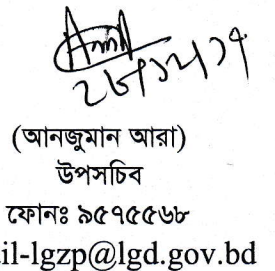 ২৮/১২/১৭
(আনজুমান আরা)
উপসচিব
ফোনঃ ৯৫৭৫৫৬৮
il-lgzp@lgd.gov.bd